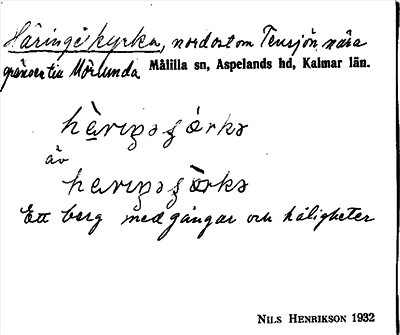 Häringe kyrka, nordost om Tensjön, nära
gränsen till Mörlunda. Målilla sn, Aspelands hd, Kalmar län.
äv
Ett berg med gångar och håligheter
NILS HENRIKSON 1932